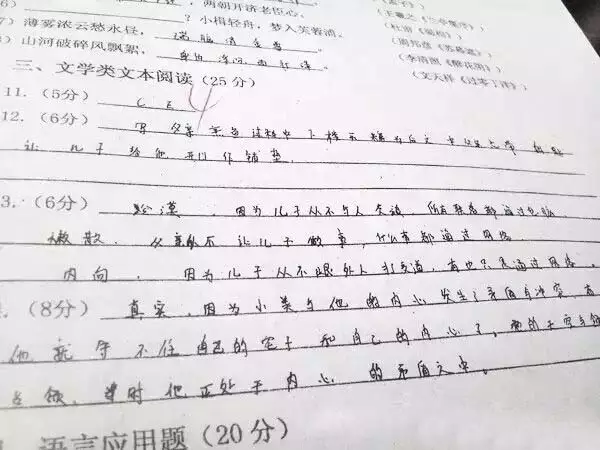 ，两朝开济老臣心。
？小楫轻舟，梦入芙蓉浦。
7）薄雾浓云愁永昼，瑞脑消金兽。（王羲之《兰亭集序》）
8）山河破碎风飘絮，身世浮沉雨打萍。（杜甫《蜀相》）
（周邦彦《苏幕遮》）
（李清照《醉花阴》）
（文天祥《过零丁洋》）
三、文学类文本阅读（25分）
11.（5分）C E 4
12.（6分）写父亲 过程中 下 为后文
让儿子给他开门作铺垫.
3.（6分）冷漠，因为儿子从不与人交谈，所有 都通过电脑
懒散. 从 不让儿子做事，什么事都通过网络
内向，因为儿子从不跟外人打交道，有也只是通过网络。
（8分）真实，因为小美与他的内心发生了矛盾与冲突，有
他 守不住自己的 子和自己的内心了。
，当时他正处于内心的矛盾之中。
语言应用题（20分）